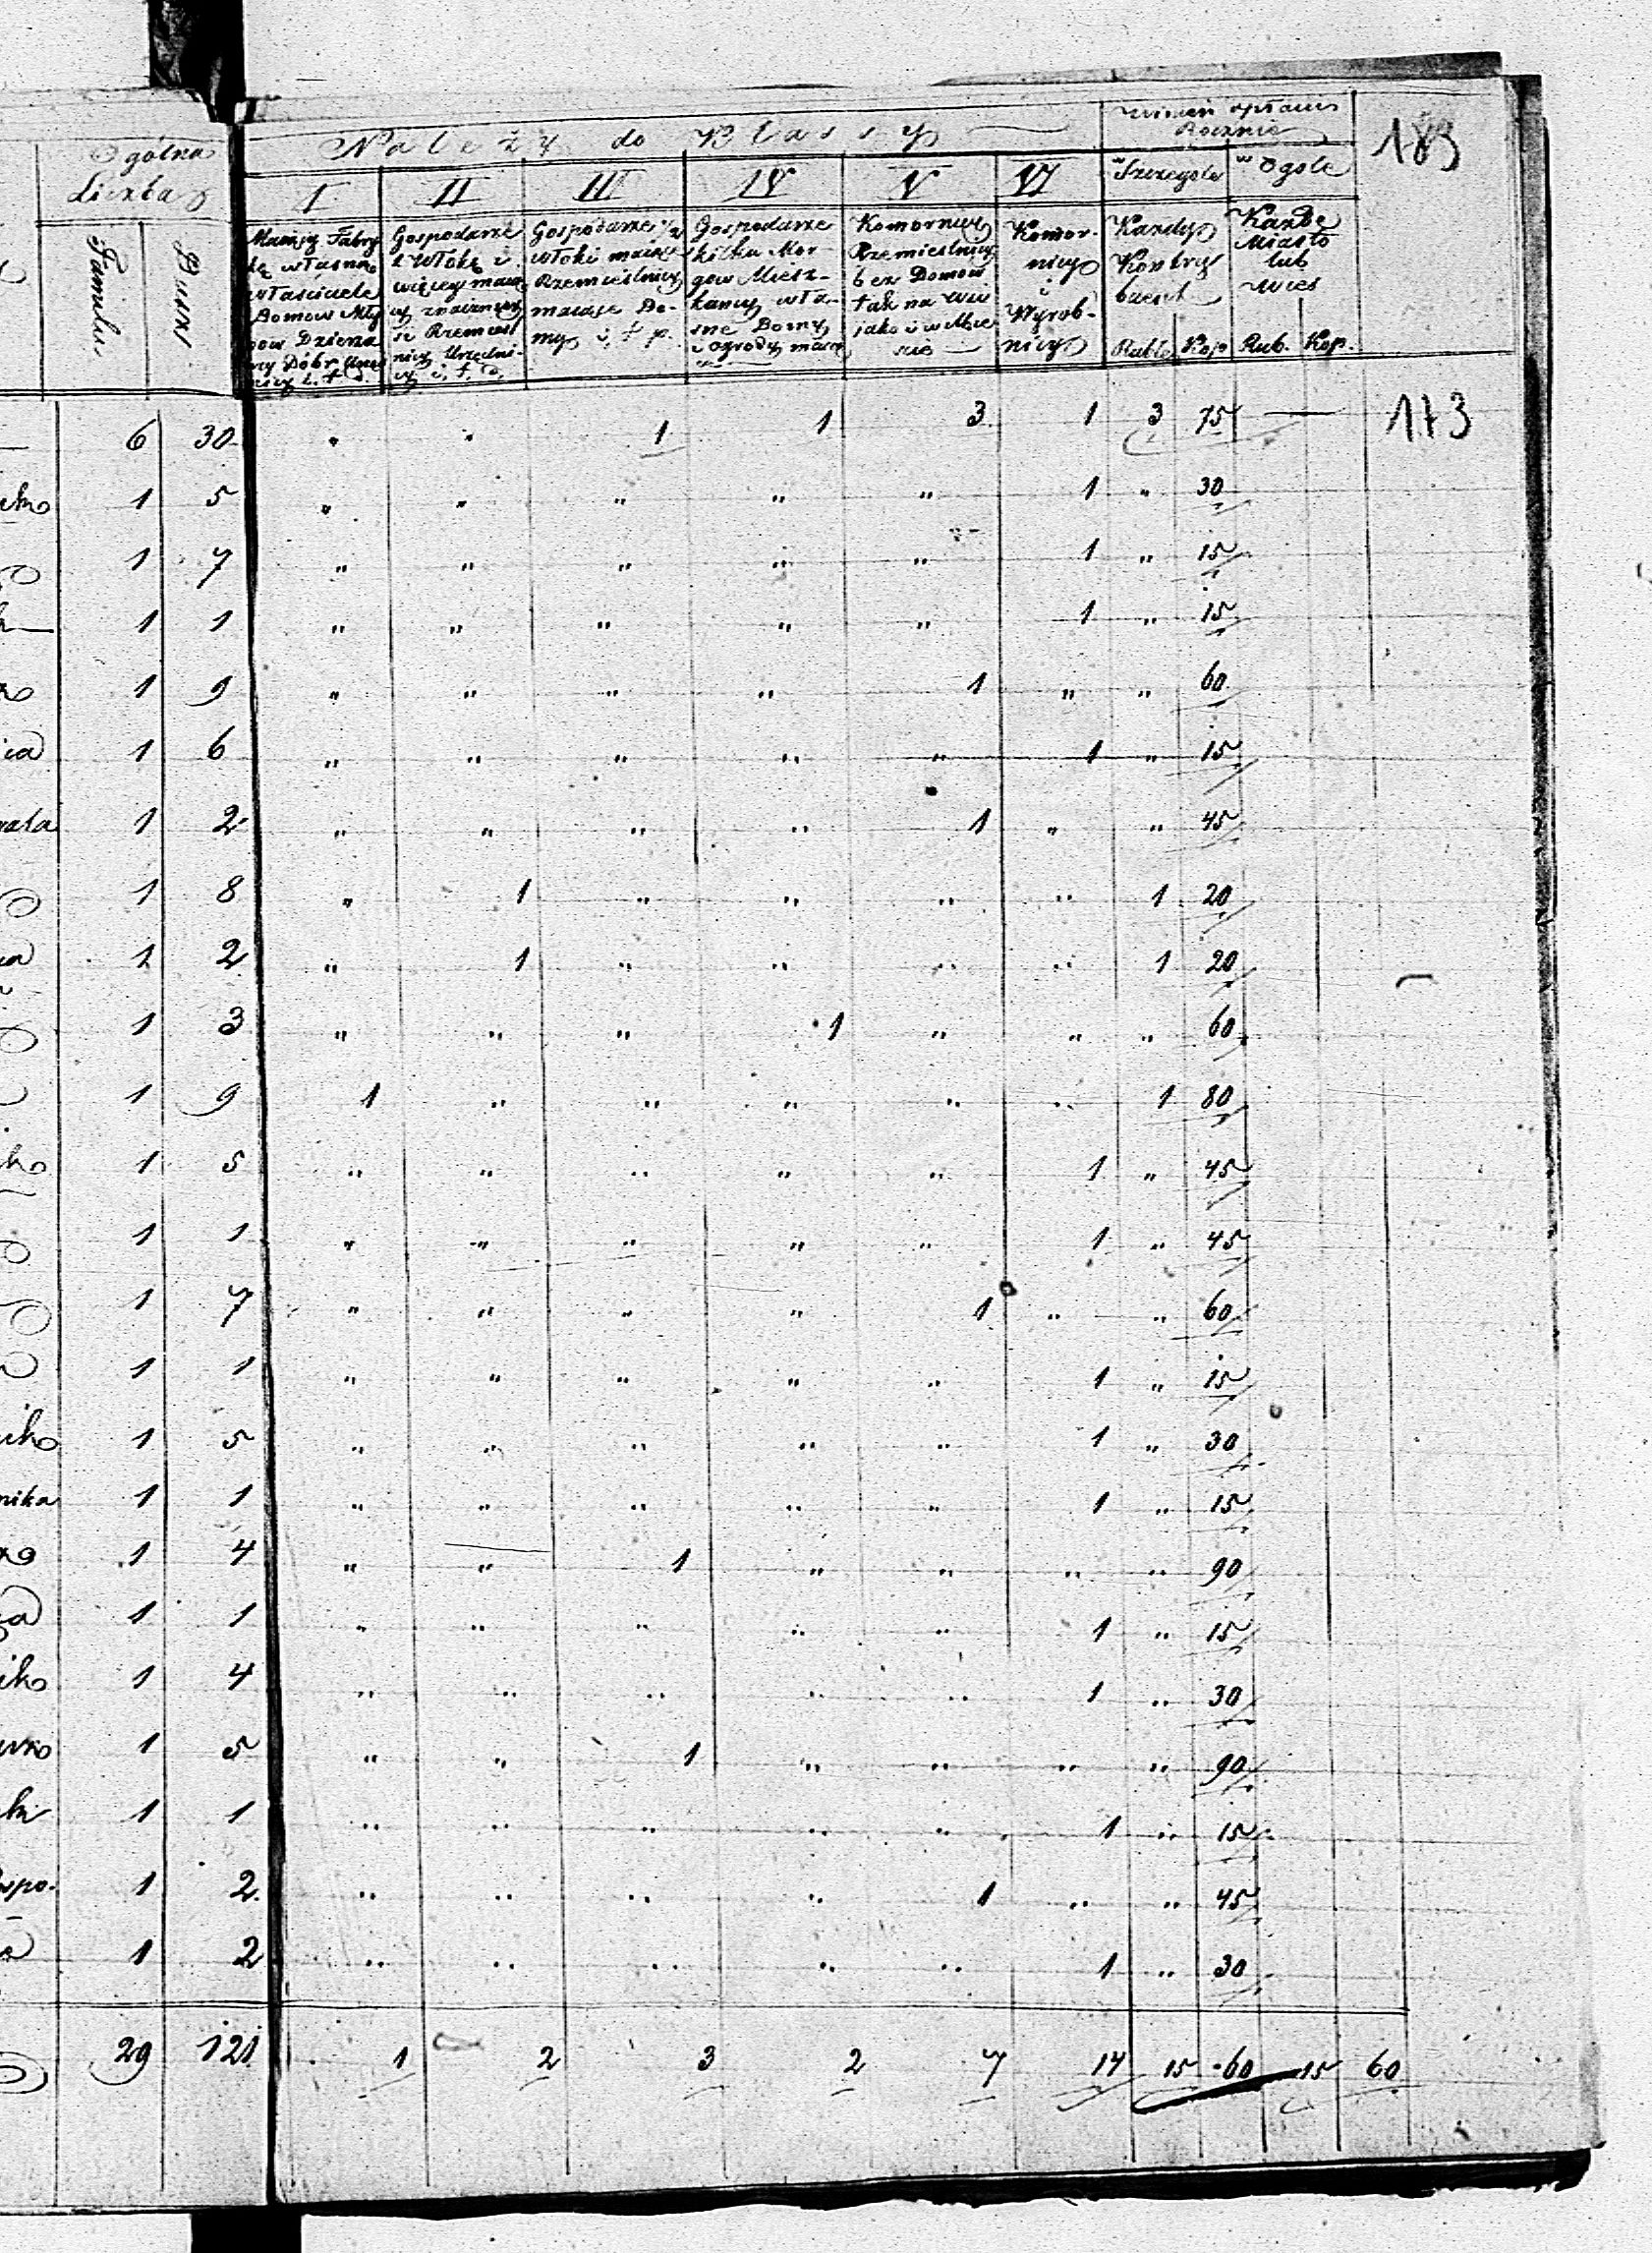 183
Ogólna Liczba
Należy do Klassy
winien opłacać Rocznie
I II III IV V VI w Szczególe w Ogóle
Familii Duszy
Mający Fabrykę własną właściciele Domów Młynów Dzierżawcy Dóbr
Gospodarze z Włóką i więcej mający znaczniejsi Rzemieślnicy Urzędnicy i. t. d.
Gospodarze ½ włóki mające Rzemieślnicy mające Domy i. t. p.
Gospodarze kilku Morgów Mieszkańcy własne Domy i ogrody mające
Komornicy Rzemieślnicy bez Domów tak na wsi jako i w Mieście
Komornicy i Wyrobnicy
Każdy Kontrybuent
Każde Miasto lub wieś
Ruble Kop. Rub. Kop.
6 30 " " 1 1 3 1 3 75 — 173
1 5 " " " " " 1 " 30
1 7 " " " " " 1 " 15
1 1 " " " " " 1 " 15
1 9 " " " " 1 " " 60
1 6 " " " " " 1 " 15
1 2 " " " " 1 " " 45
1 8 " 1 " " " " 1 20
1 2 " 1 " " " " 1 20
1 3 " " " 1 " " " 60
1 9 1 " " " " " 1 80
1 5 " " " " " 1 " 45
1 1 " " " " " 1 " 45
1 7 " " " " 1 " " 60
1 1 " " " " " 1 " 15
1 5 " " " " " 1 " 30
1 1 " " " " " 1 " 15
1 4 " " 1 " " " " 90
1 1 " " " " " 1 " 15
1 4 " " " " " 1 " 30
1 5 " " 1 " " " " 90
1 1 " " " " " 1 " 15
1 2 " " " " 1 " " 45
1 2 " " " " " 1 " 30
29 121 1 2 3 2 7 14 15 60 15 60